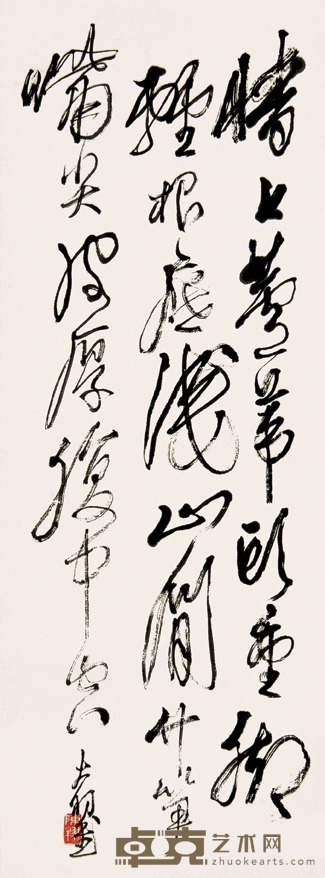 墙上芦苇头重脚
轻根底浅山间竹笋
嘴尖皮厚腹中空
卓克艺术网
zhuokearts.com